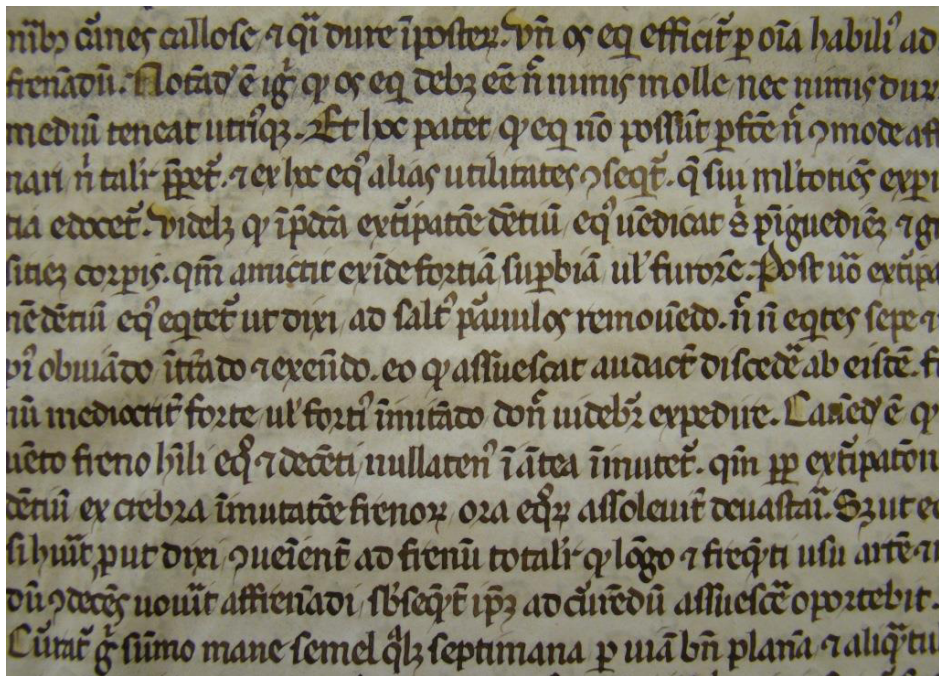 nib᷒ cāneſ calloſe ⁊ qͣſi dure īpoſteꝝ. Vn̄ os eq̇ efficit᷑ ꝑ oīa habiliꝰ ad
frenādū. Notād᷒ ē ig̊ ꝙ os eq̇ debꝫ eē n̄ nimis molle nec nimis dur
mediū teneat utriꝰqꝫ. Et hoc patet ꝙ eq̇ nō poſſūt ꝑfc̄e n̄ ꝯmode aff
nari n̄ talit᷑ p̄ꝑet᷑. ⁊ ex hoc eqꝰ alias utilitates ꝯſeq̇t᷑. q̄ ſiu ml̄tociēs expi
tia edocet᷑. videlꝫ ꝙ īp̄dc̄a extīpatōe dētiū eqꝰ uēdicat ſ᷑ pīguedinēꝫ ⁊ g
ſitieꝫ corꝑis. qm̄ amictit exīde fortiā ſuꝑbiā ul᷑ furorē. Poſt uͦo extīpa
nē dētiū eqꝰ eq̇tet᷑ ut dixi ad ſalt᷑ pͣuulos remouēdo. n̄ n̄ eq̇tes ſepe ⁊
obuiādo ītͣdo ⁊ exeūdo. eo ꝙ aſſueſcat audact᷑ diſcedē ab eiſdē. f
nū mediocrit᷑ forte ul᷑ fortiꝰ īmitādo don̄ uidebr᷑ expedire. Cauēd᷒ ē ꝙ
uēto freno hīli eqͦ ⁊ decēti nullatenꝰ ī ātea īmutet᷑. qm̄ ꝓp extīpatōn
dētiū ex crebra īmutatōe frenoꝝ ora eqͦꝝ aſſoleuīt deuaſtaͣi. Sꝫ ut e
ſi huiͣt ꝓut dixi ꝯueīent᷑ ad frenū totalit᷑ ꝙ lōgo ⁊ freq̄ti uſu artē ⁊
dū ꝯdecēſ nouiͣt affrenādi ſb᷑ſeq̄t᷑ ip̄ꝫ ad cūrēdū aſſueſcē oportebit.
Cūrat᷑ g̊ ſūmo mane ſemel qͣlꝫ ſeptimana ꝑ uiā bn̄ planā ⁊ aliqͣtu